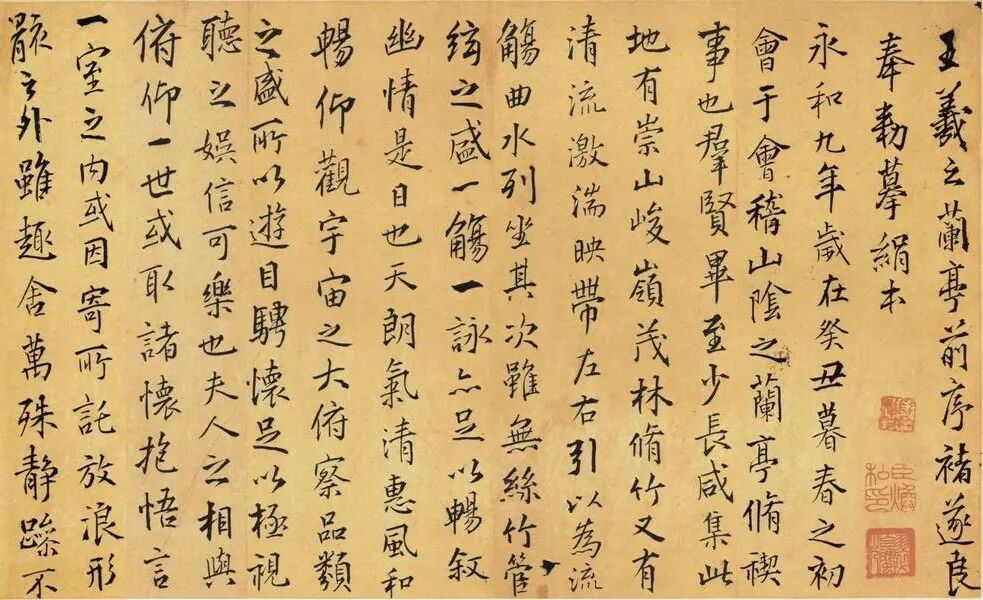 王羲之蘭亭前序褚遂良
奉勅摹絹本
永和九年歲在癸丑暮春之初
會于會稽山陰之蘭亭脩禊
事也羣賢畢至少長咸集此
地有崇山峻嶺茂林脩竹又有
清流激湍映帶左右引以為流
觴曲水列坐其次雖無絲竹管
絃之盛一觴一詠亦足以暢叙
幽情是日也天朗氣清惠風和
暢仰觀宇宙之大俯察品類
之盛所以遊目騁懷足以極視
聽之娛信可樂也夫人之相與
俯仰一世或取諸懷抱悟言
一室之內或因寄所託放浪形
骸之外雖趣舍萬殊静躁不